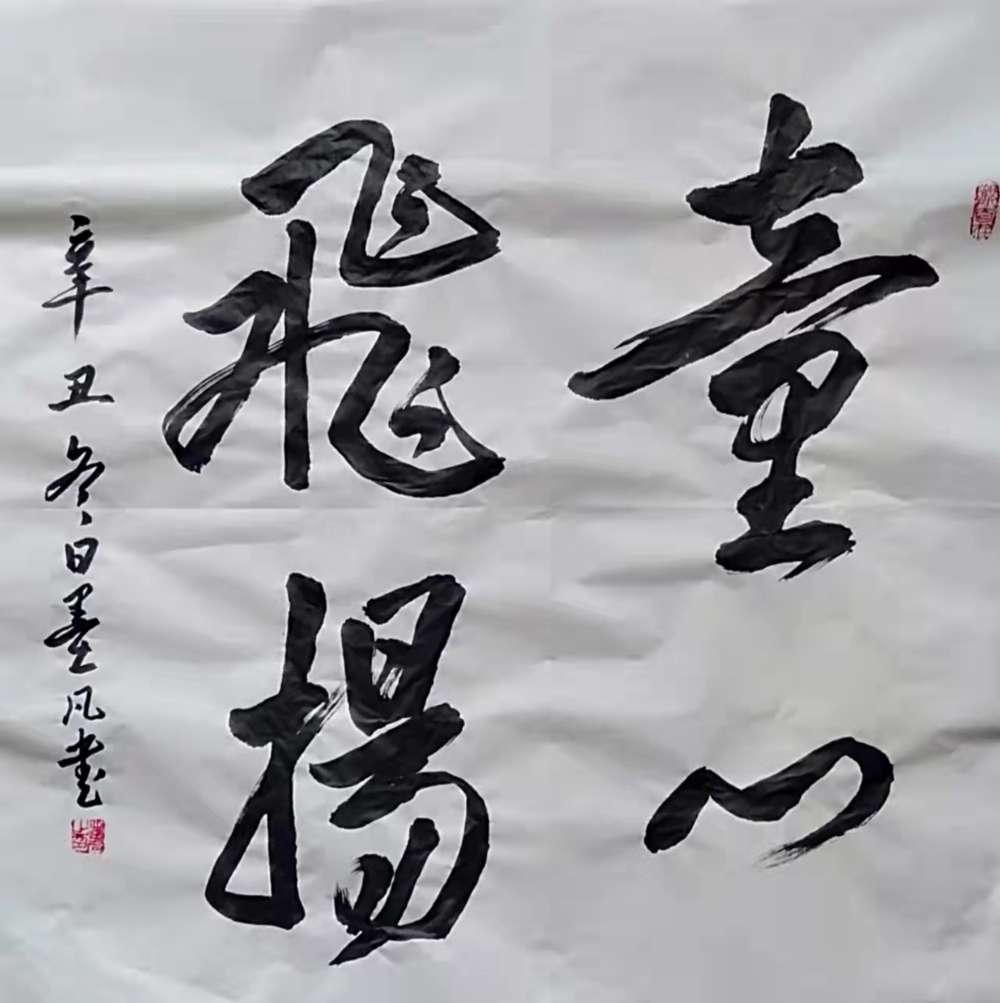 童心
飛揚
辛丑冬日墨凡書